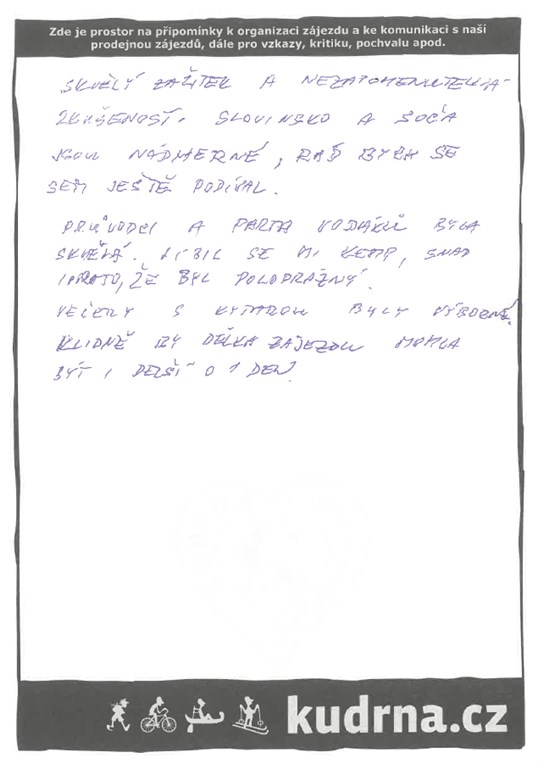 Zde je prostor na připomínky k organizaci zájezdu a ke komunikaci s naší
prodejnou zájezdů, dále pro vzkazy, kritiku, pochvalu apod.
SKVĚLÝ ZÁŽITEK A NEZAPOMENUTELNÁ
ZKUŠENOST. SLOVINSKO A SOČA
JSOU NÁDHERNÉ, RÁD BYCH SE
SEM JEŠTĚ PODÍVAL.
PRŮVODCI A PARTA VODÁKŮ BYLA
SKVĚLÁ. LÍBIL SE MI KEMP, SNAD
I PROTO, ŽE BYL POLOPRÁZNÝ.
VEČERY S KYTAROU BYLY VÝBORNÉ.
KLIDNĚ BY DÉLKA ZÁJEZDU MOHLA
BÝT I DELŠÍ O 1 DEN.
kudrna.cz